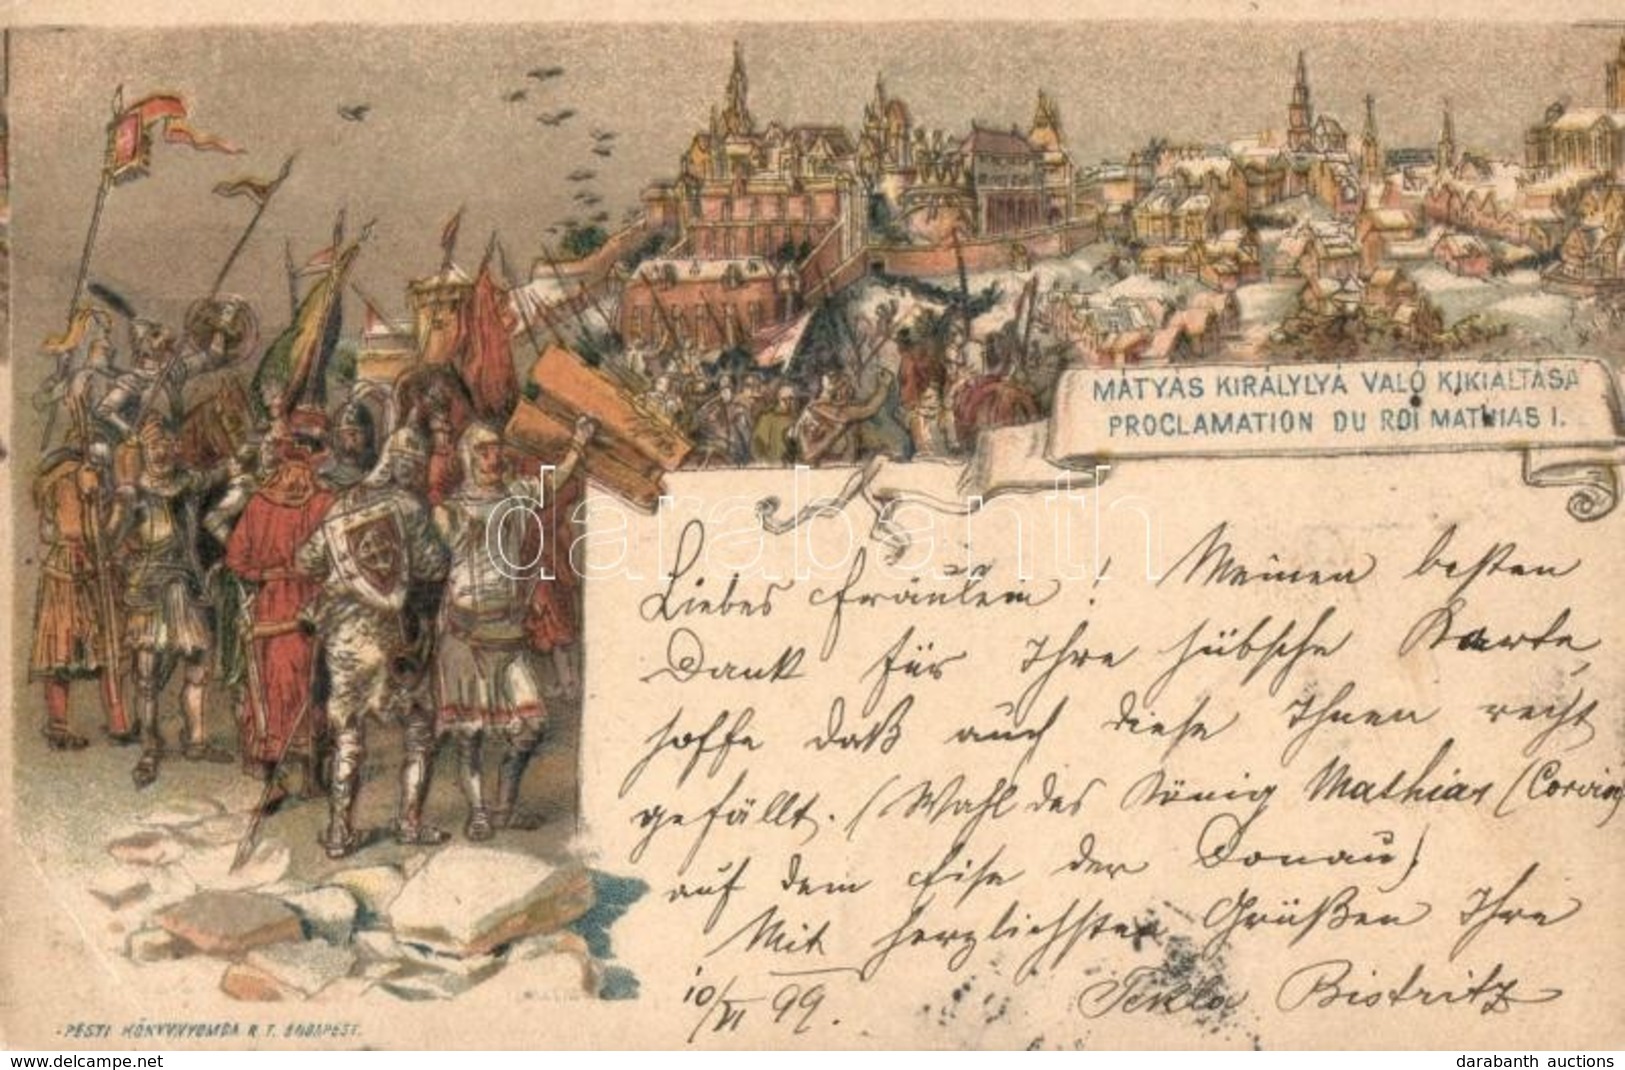 MÁTYÁS KIRÁLYLYÁ VALÓ KIKIÁLTÁSA
PROCLAMATION DU ROI MATHIAS I.
darabanth
Liebes Fräulein! Meinen besten
Dank für Ihre hübsche Karte,
hoffe daß auch diese Ihnen recht
gefällt. (Wahl des König Mathias (Corvin)
auf dem Eise der Donau)
Mit herzlichsten Grüßen Ihre
10/VI 99. Tekla Bistritz
PESTI KÖNYVNYOMDA R. T. BUDAPEST.
www.delcampe.net
darabanth auctions